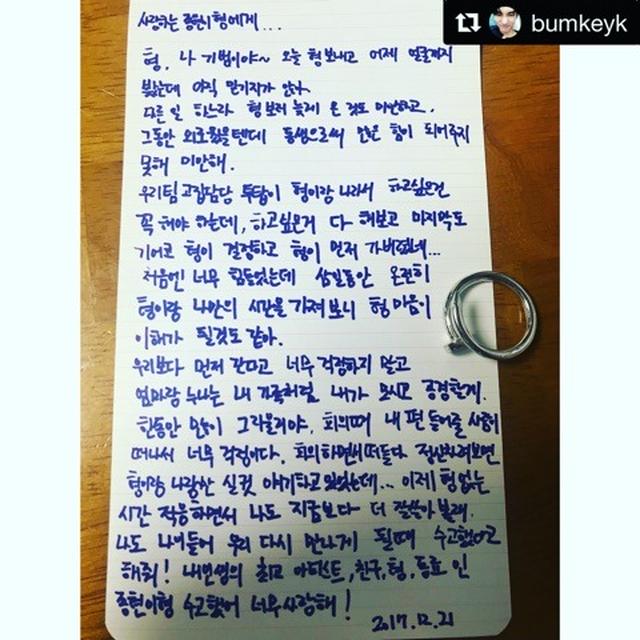 bumkeyk
사랑하는 종현이형에게...
형, 나 기범이야~ 오늘 형 보내고 어제 얼굴까지
봤는데 아직 믿기지가 않아.
다른 일 하느라 형 보러 늦게 온 것도 미안하고.
그동안 외로웠을텐데 동생으로써 더 힘이 되어주지
못해 미안해.
우리팀 고집담당 투탑이 형이랑 나라서 하고싶은건
꼭 해야 하는데, 하고싶은거 다 해보고 마지막도
기어코 형이 결정하고 형이 먼저 가버렸네...
처음엔 너무 힘들었는데 삼일동안 온전히
형이랑 나만의 시간을 가져 보니 형 마음이
이해가 될것도 같아.
우리보다 먼저 간다고 너무 걱정하지 말고
엄마랑 누나는 내 가족처럼 내가 모시고 공경할게.
한동안 많이 그리울거야. 회의때 내 편 들어줄 사람이
떠나서 너무 걱정이다. 회의하면서 떠들다 정신차려보면
형이랑 나랑만 실컷 얘기하고 있었는데... 이제 형 없는
시간 적응하면서 나도 지금보다 더 잘 살아 볼래.
나도 나이들어 우리 다시 만나게 될때 수고했다고
해줘! 내 인생의 최고 아티스트, 친구, 형, 동료 인
종현이형 수고했어 너무 사랑해!
2017.12.21